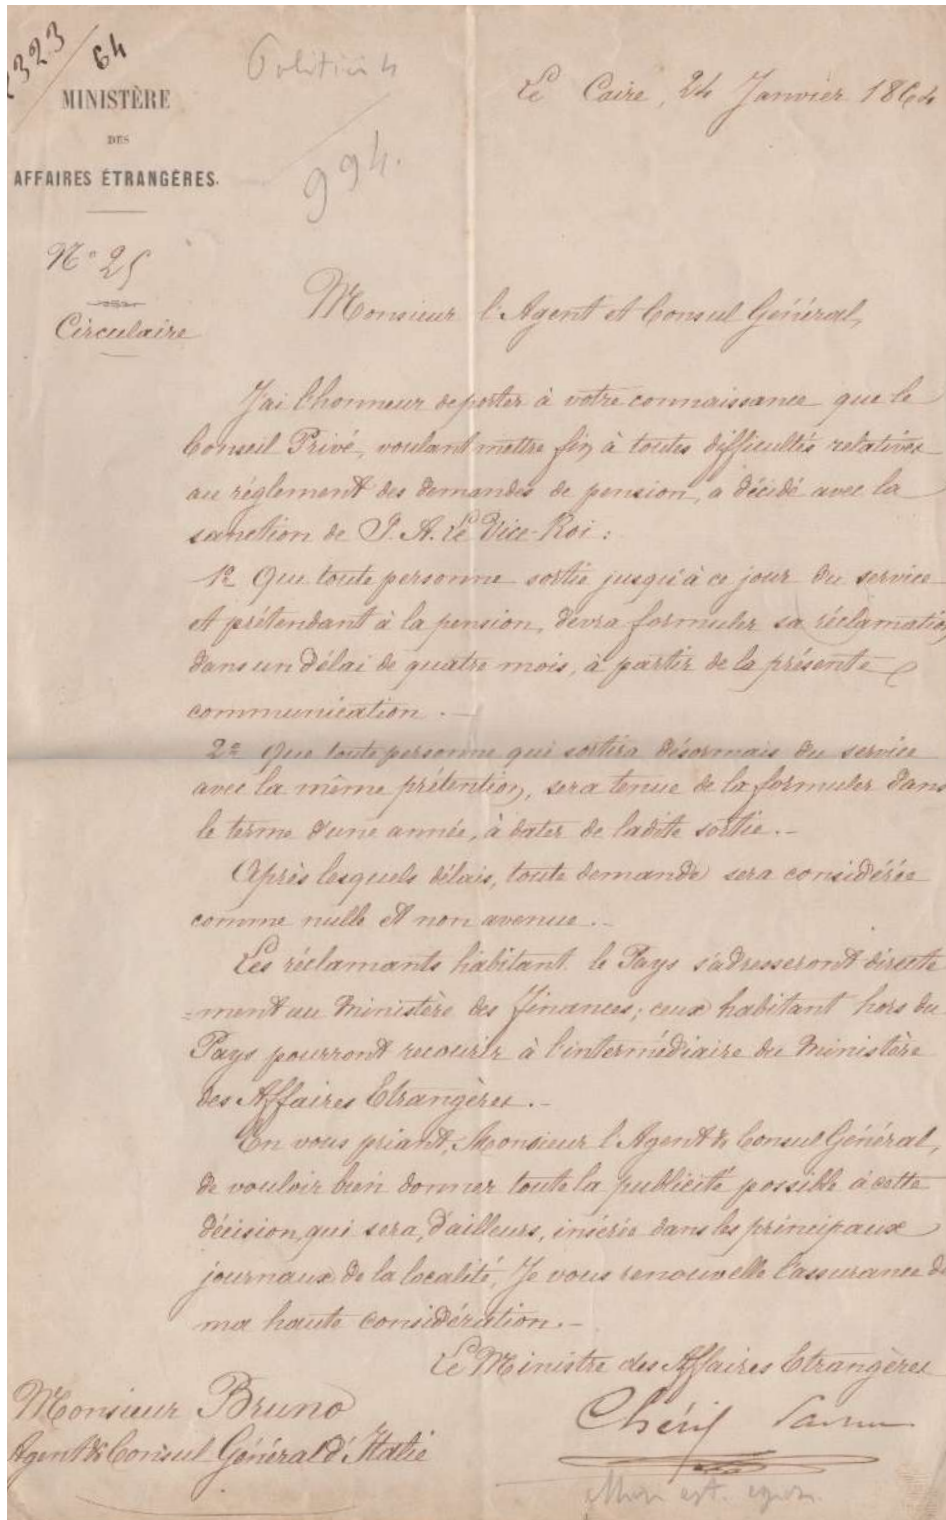 323/64
MINISTÈRE
DES
AFFAIRES ÉTRANGÈRES.
N° 25
Circulaire
994.
Le Caire, 24 Janvier 1864
Monsieur l'Agent et Consul Général,
J'ai l'honneur de porter à votre connaissance que le
Conseil Privé, voulant mettre fin à toutes difficultés relatives
au réglement des demandes de pension, a décidé avec la
sanction de S. A. Le Vice-Roi :
1° Que toute personne sortie jusqu'à ce jour du service
et prétendant à la pension, devra formuler sa réclamation
dans un délai de quatre mois, à partir de la présente
communication . —
2° Que toute personne qui sortira désormais du service
avec la même prétention, sera tenue de la formuler dans
le terme d'une année, à dater de ladite sortie . —
Après lesquels délais, toute demande sera considérée
comme nulle et non avenue . —
Les réclamants habitant le Pays s'adresseront directe
=ment au Ministère des Finances; ceux habitant hors du
Pays pourront recourir à l'intermédiaire du Ministère
des Affaires Etrangères . —
En vous priant, Monsieur l'Agent & Consul Général,
de vouloir bien donner toute la publicité possible à cette
décision, qui sera, d'ailleurs, insérée dans les principaux
journaux de la localité, Je vous renouvelle l'assurance de
ma haute considération . —
Le Ministre des Affaires Etrangères
Chérif
Monsieur Bruno
Agent & Consul Général d'Italie